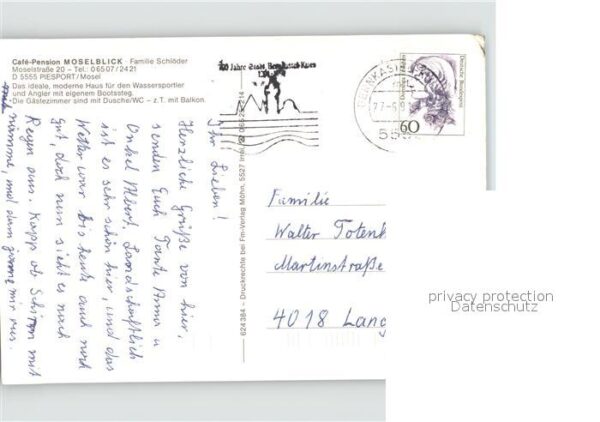 Café-Pension MOSELBLICK · Familie Schlöder
Moselstraße 20 – Tel.: 06507/2421
D 5555 PIESPORT/Mosel
Das ideale, moderne Haus für den Wassersportler
und Angler mit eigenem Bootssteg.
Die Gästezimmer sind mit Dusche/WC – z.T. mit Balkon.
Ihr Lieben!
Herzliche Grüße von hier,
senden Euch Tante Anna u
Onkel Albert. Landschaftlich
ist es sehr schön hier, und das
Wetter war bis heute auch noch
gut, doch nun sieht es nach
Regen aus. Knapp ob Schirm mit
und dann gehen wir aus.
624384 – Druckrechte bei Fm-Verlag Möhn, 5527 Irrel
700 Jahre Stadt Bernkastel-Kues
BERNKASTEL-KUES
Deutsche Bundespost
60
Familie
Walter
Martinstraße
4018 Lang
privacy protection
Datenschutz